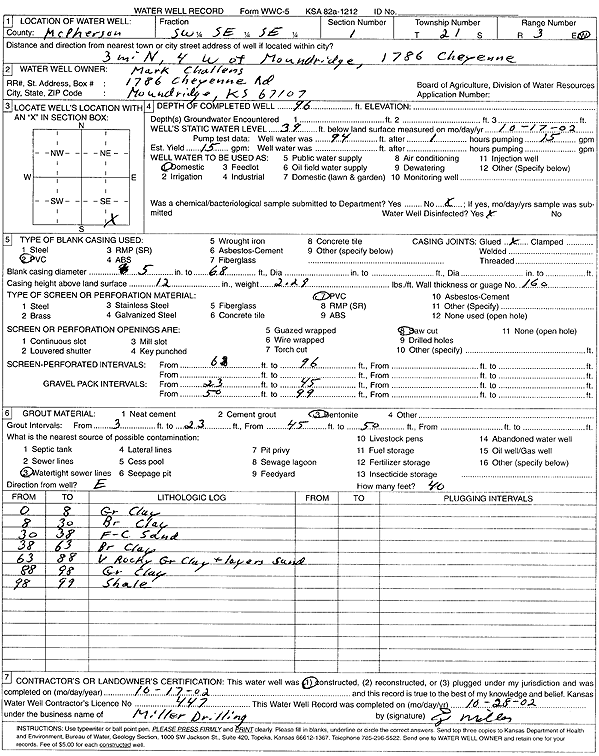 WATER WELL RECORD Form WWC-5 KSA 82a-1212 ID No.
1 LOCATION OF WATER WELL: Fraction Section Number Township Number Range Number
County: McPherson SW ¼ SE ¼ SE ¼ 1 T 21 S R 3 E/W
Distance and direction from nearest town or city street address of well if located within city?
3 mi N, 4 W of Moundridge, 1786 Cheyenne
2 WATER WELL OWNER: Mark Challens
RR#, St. Address, Box # : 1786 Cheyenne Rd Board of Agriculture, Division of Water Resources
City, State, ZIP Code : Moundridge, KS 67107 Application Number:
3 LOCATE WELL'S LOCATION WITH AN "X" IN SECTION BOX:
N
NW NE
W E
SW SE
X
S
4 DEPTH OF COMPLETED WELL 96 ft. ELEVATION:
Depth(s) Groundwater Encountered 1 ft. 2 ft. 3 ft.
WELL'S STATIC WATER LEVEL 39 ft. below land surface measured on mo/day/yr 10-17-02
Pump test data: Well water was 94 ft. after 1 hours pumping 15 gpm
Est. Yield 15 gpm: Well water was ft. after hours pumping gpm
WELL WATER TO BE USED AS: 5 Public water supply 8 Air conditioning 11 Injection well
1 Domestic 3 Feedlot 6 Oil field water supply 9 Dewatering 12 Other (Specify below)
2 Irrigation 4 Industrial 7 Domestic (lawn & garden) 10 Monitoring well
Was a chemical/bacteriological sample submitted to Department? Yes No X; If yes, mo/day/yrs sample was submitted
Water Well Disinfected? Yes X No
5 TYPE OF BLANK CASING USED: 5 Wrought iron 8 Concrete tile CASING JOINTS: Glued X Clamped
1 Steel 3 RMP (SR) 6 Asbestos-Cement 9 Other (specify below) Welded
2 PVC 4 ABS 7 Fiberglass Threaded
Blank casing diameter 5 in. to 68 ft., Dia in. to ft., Dia in. to ft.
Casing height above land surface 12 in., weight 2.28 lbs./ft. Wall thickness or guage No. 160
TYPE OF SCREEN OR PERFORATION MATERIAL: 7 PVC 10 Asbestos-Cement
1 Steel 3 Stainless Steel 5 Fiberglass 8 RMP (SR) 11 Other (Specify)
2 Brass 4 Galvanized Steel 6 Concrete tile 9 ABS 12 None used (open hole)
SCREEN OR PERFORATION OPENINGS ARE: 5 Guazed wrapped 8 Saw cut 11 None (open hole)
1 Continuous slot 3 Mill slot 6 Wire wrapped 9 Drilled holes
2 Louvered shutter 4 Key punched 7 Torch cut 10 Other (specify) ft.
SCREEN-PERFORATED INTERVALS: From 68 ft. to 96 ft., From ft. to ft.
From ft. to ft., From ft. to ft.
GRAVEL PACK INTERVALS: From 23 ft. to 45 ft., From ft. to ft.
From 50 ft. to 99 ft., From ft. to ft.
6 GROUT MATERIAL: 1 Neat cement 2 Cement grout 3 Bentonite 4 Other
Grout Intervals: From 3 ft. to 23 ft., From 45 ft. to 50 ft., From ft. to ft.
What is the nearest source of possible contamination: 10 Livestock pens 14 Abandoned water well
1 Septic tank 4 Lateral lines 7 Pit privy 11 Fuel storage 15 Oil well/Gas well
2 Sewer lines 5 Cess pool 8 Sewage lagoon 12 Fertilizer storage 16 Other (specify below)
3 Watertight sewer lines 6 Seepage pit 9 Feedyard 13 Insecticide storage
Direction from well? E How many feet? 40
FROM TO LITHOLOGIC LOG FROM TO PLUGGING INTERVALS
0 8 Gr Clay
8 30 Br Clay
30 38 F-C Sand
38 63 Br Clay
63 88 V Rocky Gr Clay + layers sand
88 98 Gr Clay
98 99 Shale
7 CONTRACTOR'S OR LANDOWNER'S CERTIFICATION: This water well was (1) constructed, (2) reconstructed, or (3) plugged under my jurisdiction and was
completed on (mo/day/year) 10-17-02 and this record is true to the best of my knowledge and belief. Kansas
Water Well Contractor's Licence No 447 This Water Well Record was completed on (mo/day/yr) 10-28-02
under the business name of Miller Drilling by (signature)
INSTRUCTIONS: Use typewriter or ball point pen. PLEASE PRESS FIRMLY and PRINT clearly. Please fill in blanks, underline or circle the correct answers. Send top three copies to Kansas Department of Health
and Environment, Bureau of Water, Geology Section, 1000 SW Jackson St., Suite 420, Topeka, Kansas 66612-1367. Telephone 785-296-5522. Send one to WATER WELL OWNER and retain one for your
records. Fee of $5.00 for each constructed well.